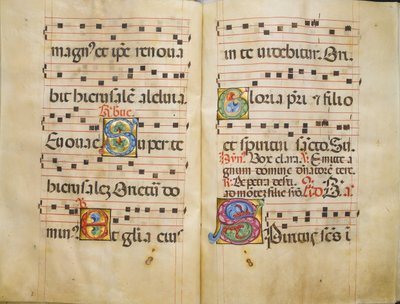 magnꝰ et ip̄e renoua
bit hierusalē alleluia
R̃ bͬue
Euouae Super te
hierusalez Orietur do
R̃
minꝰ Et gl̃ia eius
in te uidebitur. On.
Gloria p̃ri ⁊ filio
et spiritui sancto Su.
Hyñ. Vox clara. ℟ Emitte a
gnum domine dominatorē terre.
℟ De petra deserti
ad montē filie syō
Spiritus scs̄ i